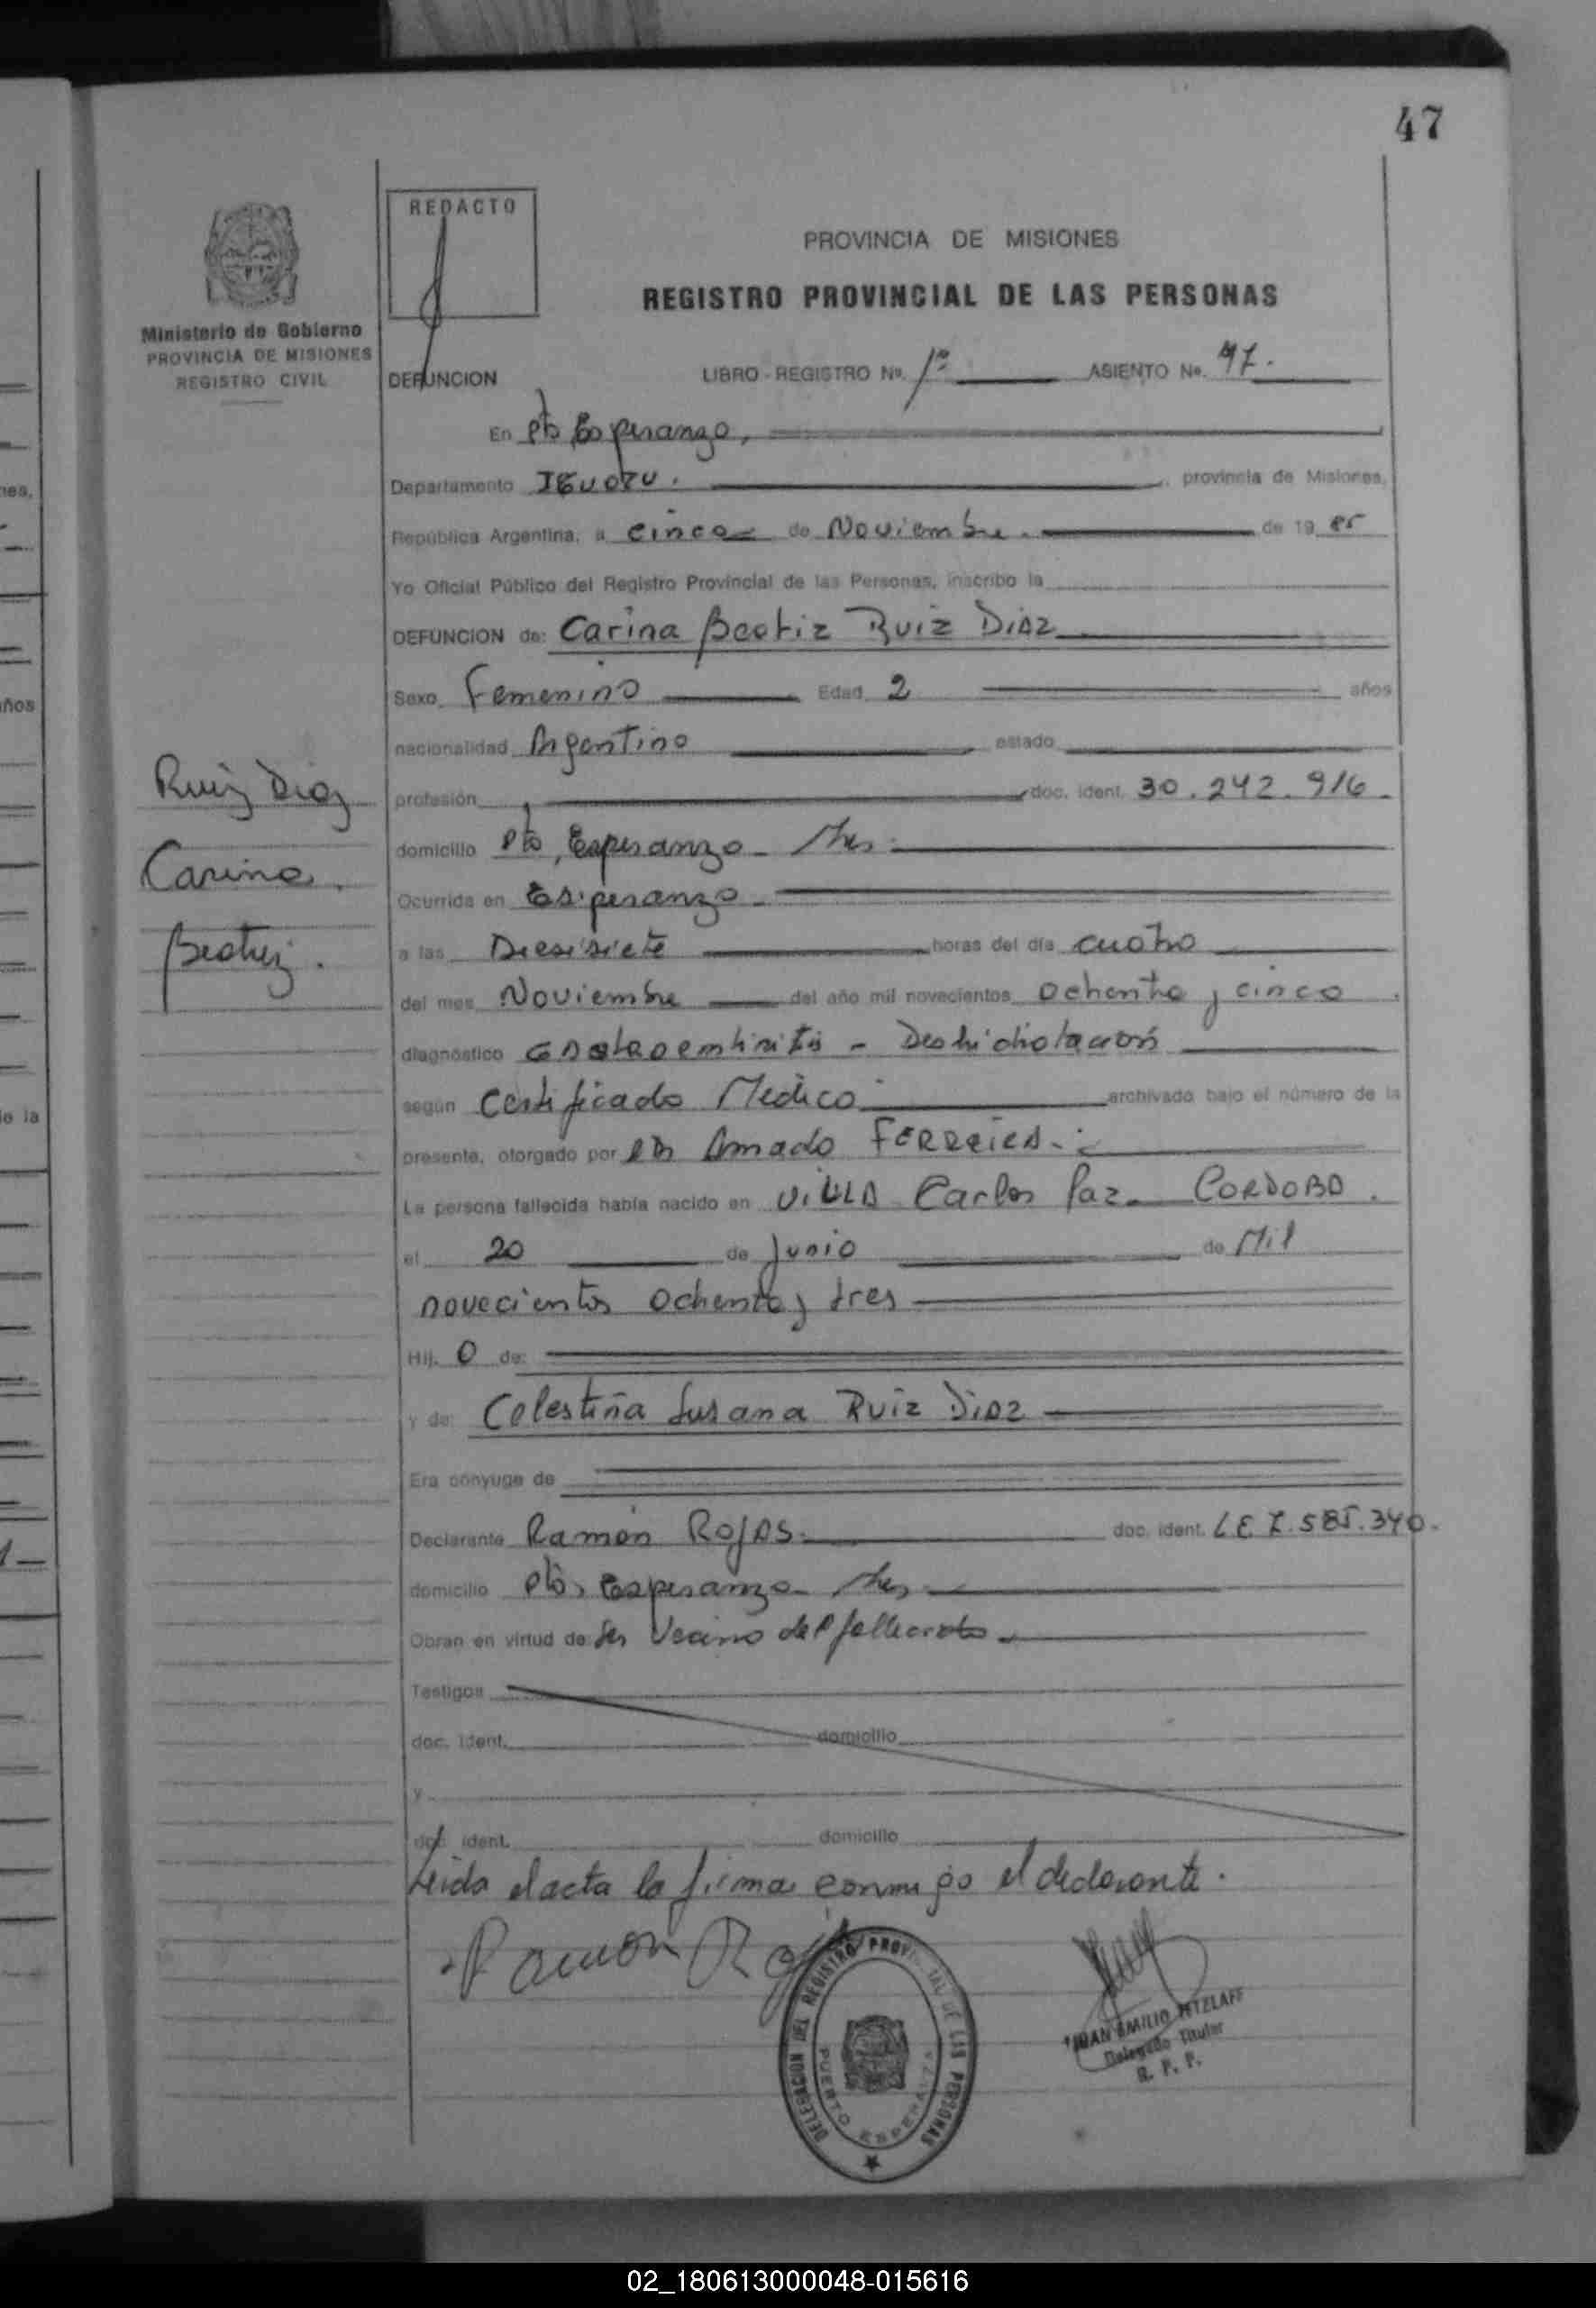 47
REDACTO
PROVINCIA DE MISIONES
REGISTRO PROVINCIAL DE LAS PERSONAS
Ministerio de Gobierno
PROVINCIA DE MISIONES
REGISTRO CIVIL
DEFUNCION LIBRO - REGISTRO No. 1º ASIENTO No. 47.
En Pto Esperanza,
Departamento IGUAZU. provincia de Misiones,
República Argentina, a cinco de Noviembre. de 19 85
Yo Oficial Público del Registro Provincial de las Personas, inscribo la
DEFUNCION de: Carina Beatriz Ruiz Diaz
Sexo Femenino Edad 2 años
nacionalidad Argentino estado
profesión doc. ident. 30.242.916.
domicilio Pto, Esperanza - Mnes.
Ocurrida en Esperanza
a las Diesisiete horas del día cuatro
del mes Noviembre del año mil novecientos ochenta y cinco
diagnóstico Gastroenteritis - Deshidratación
según Certificado Médico archivado bajo el número de la
presente, otorgado por Amado
La persona fallecida había nacido en VILLA Carlos Paz. CORDOBA.
el 20 de Junio de Mil
novecientos ochenta y tres
Hij. o de:
y de: Celestina Susana Ruiz Diaz
Era cónyuge de
Declarante Ramón Rojas. doc. ident. LE 7.585.340.
domicilio Pto, Esperanza Mnes.
Obran en virtud de: Ser Vecino del fallecido
Testigos
doc. ident. domicilio
y
doc. ident. domicilio
Leida el acta la firma conmigo el declarante.
Ramón Rojas
Ruiz Diaz
Carina.
Beatriz.
DELEGACION DEL REGISTRO PROVINCIAL DE LAS PERSONAS
PUERTO ESPERANZA
JUAN EMILIO
Delegado Titular
R. P. P.
02_180613000048-015616